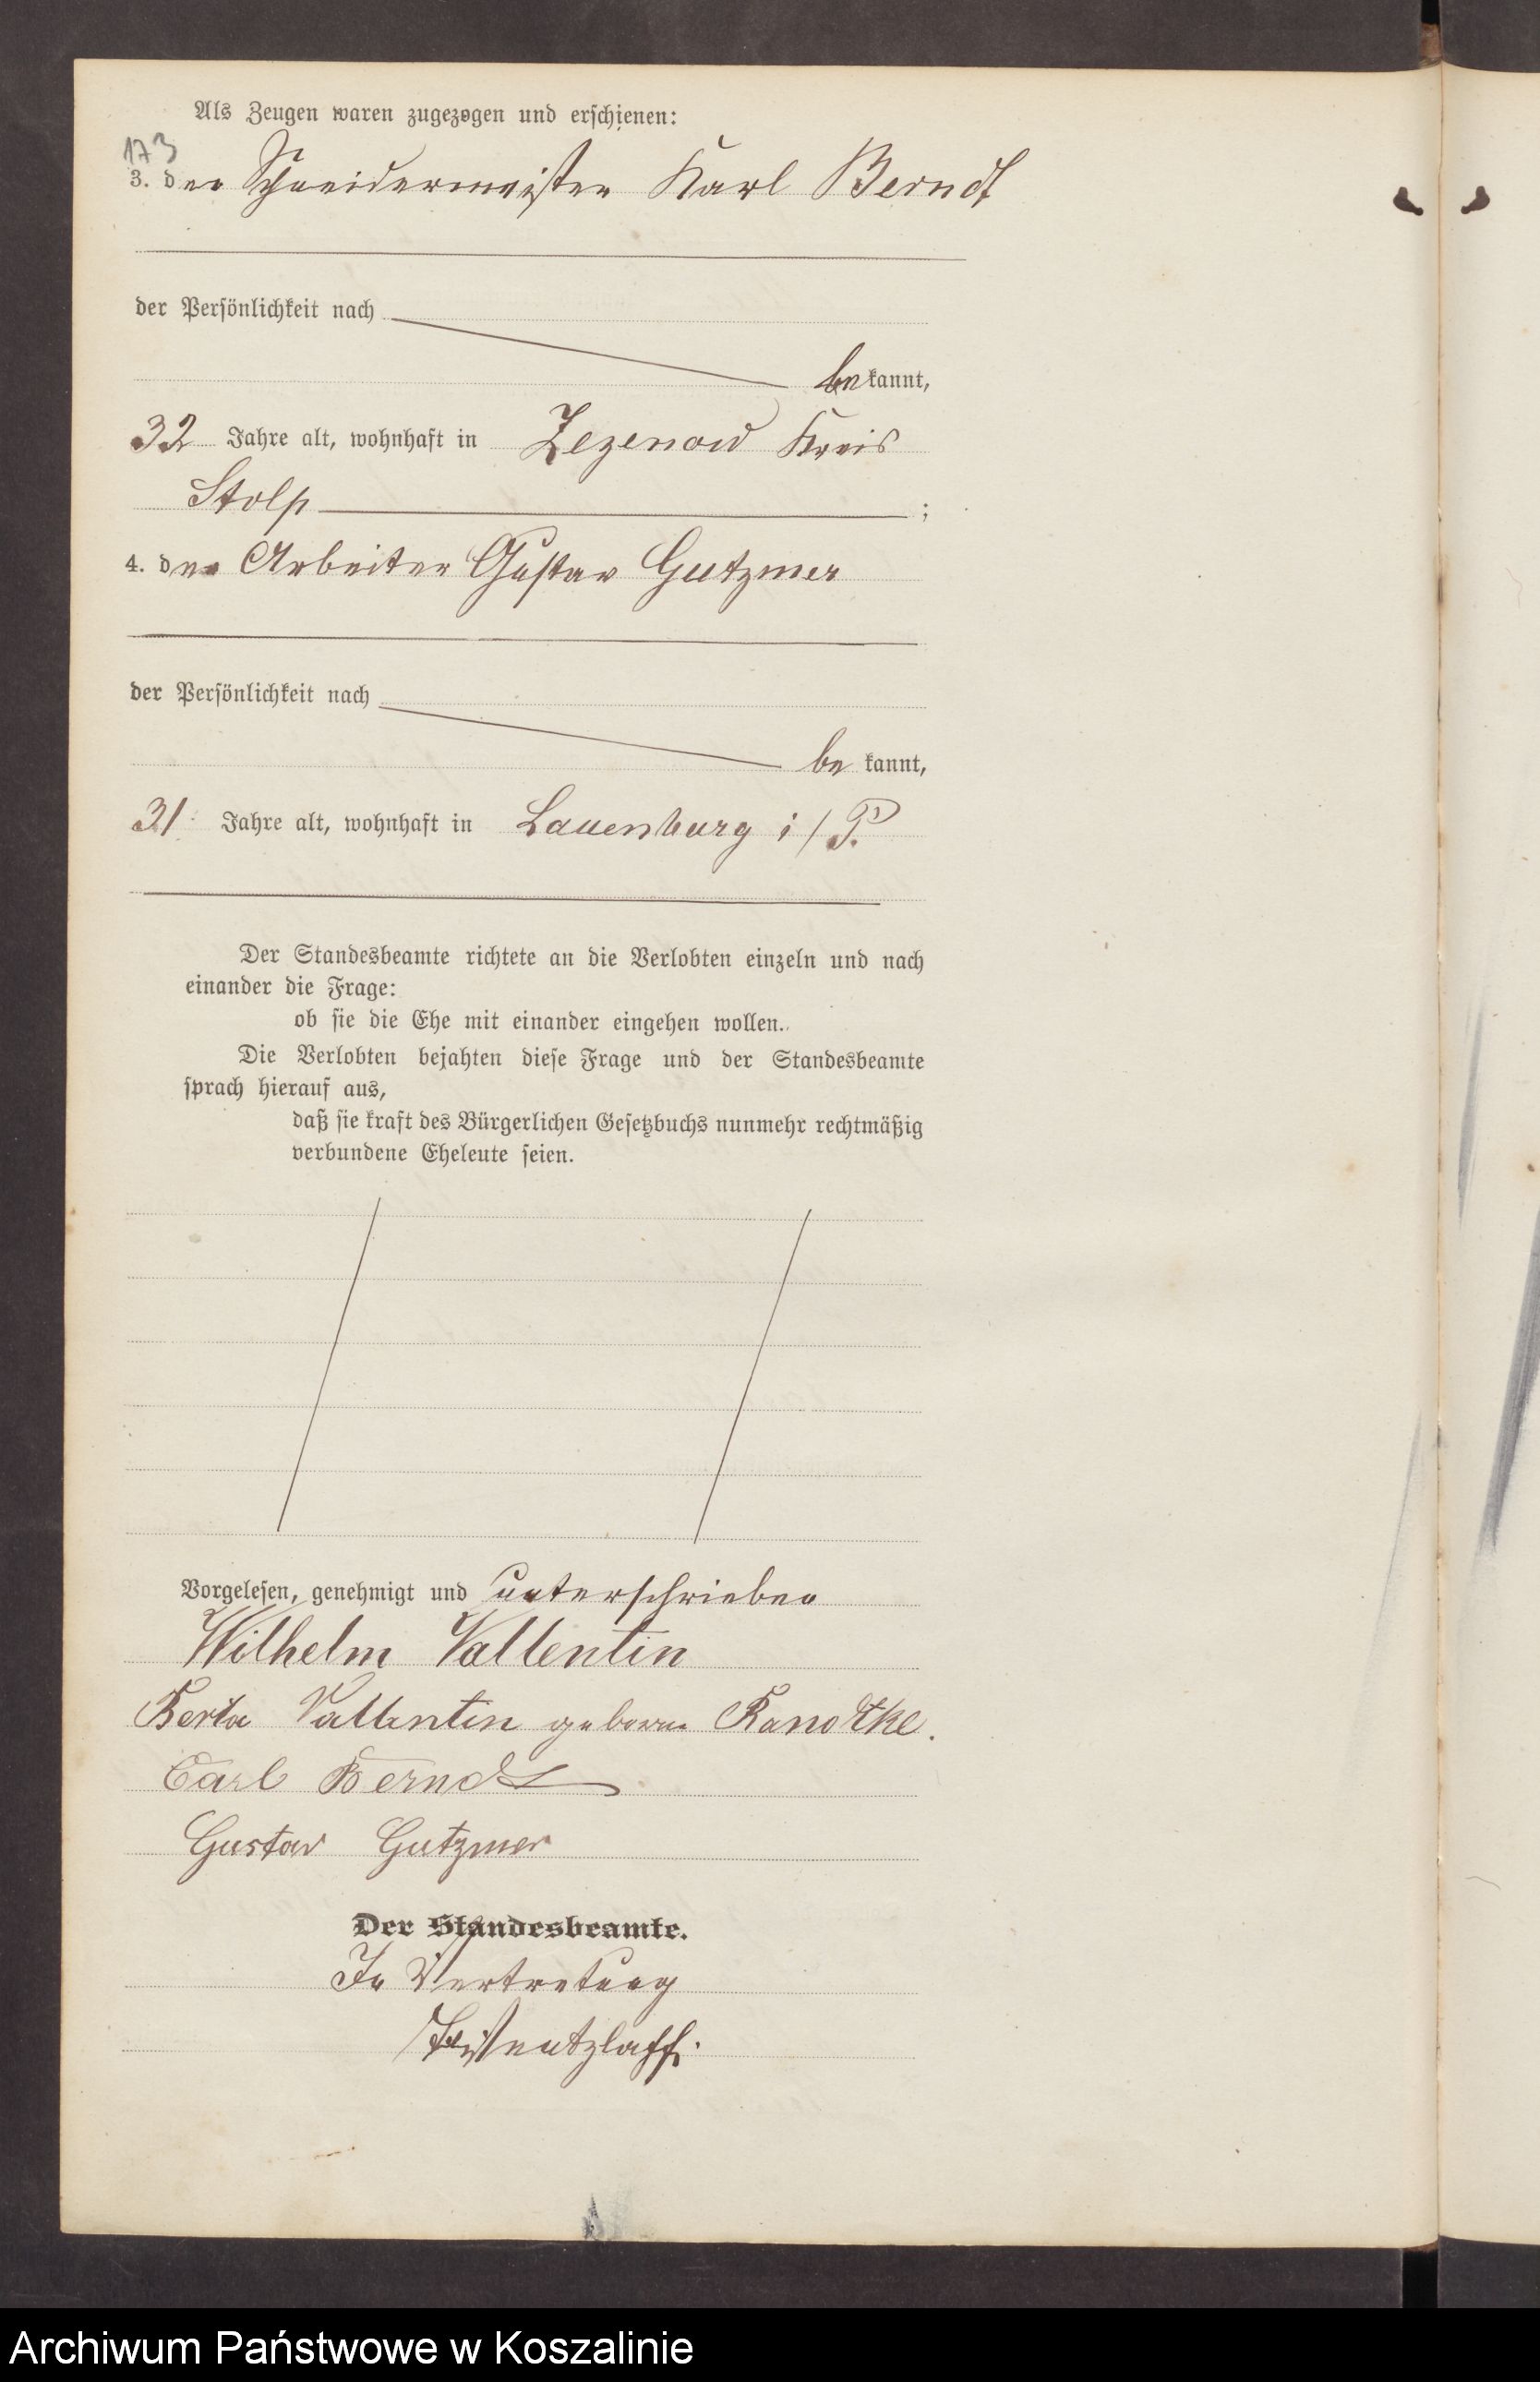 Als Zeugen waren zugezogen und erschienen:
173
3. der Schneidermeister Karl Berndt
der Persönlichkeit nach
bekannt,
32 Jahre alt, wohnhaft in Zezenow Kreis
Stolp ;
4. der Arbeiter Gustav Gutzmer
der Persönlichkeit nach
be kannt,
31 Jahre alt, wohnhaft in Lauenburg i/P.
Der Standesbeamte richtete an die Verlobten einzeln und nach
einander die Frage:
ob sie die Ehe mit einander eingehen wollen.
Die Verlobten bejahten diese Frage und der Standesbeamte
sprach hierauf aus,
daß sie kraft des Bürgerlichen Gesetzbuchs nunmehr rechtmäßig
verbundene Eheleute seien.
Vorgelesen, genehmigt und unterschrieben
Wilhelm Vallentin
Berta Vallentin geborne Randtke.
Carl Berndt
Gustav Gutzmer
Der Standesbeamte.
In Vertretung
Archiwum Państwowe w Koszalinie